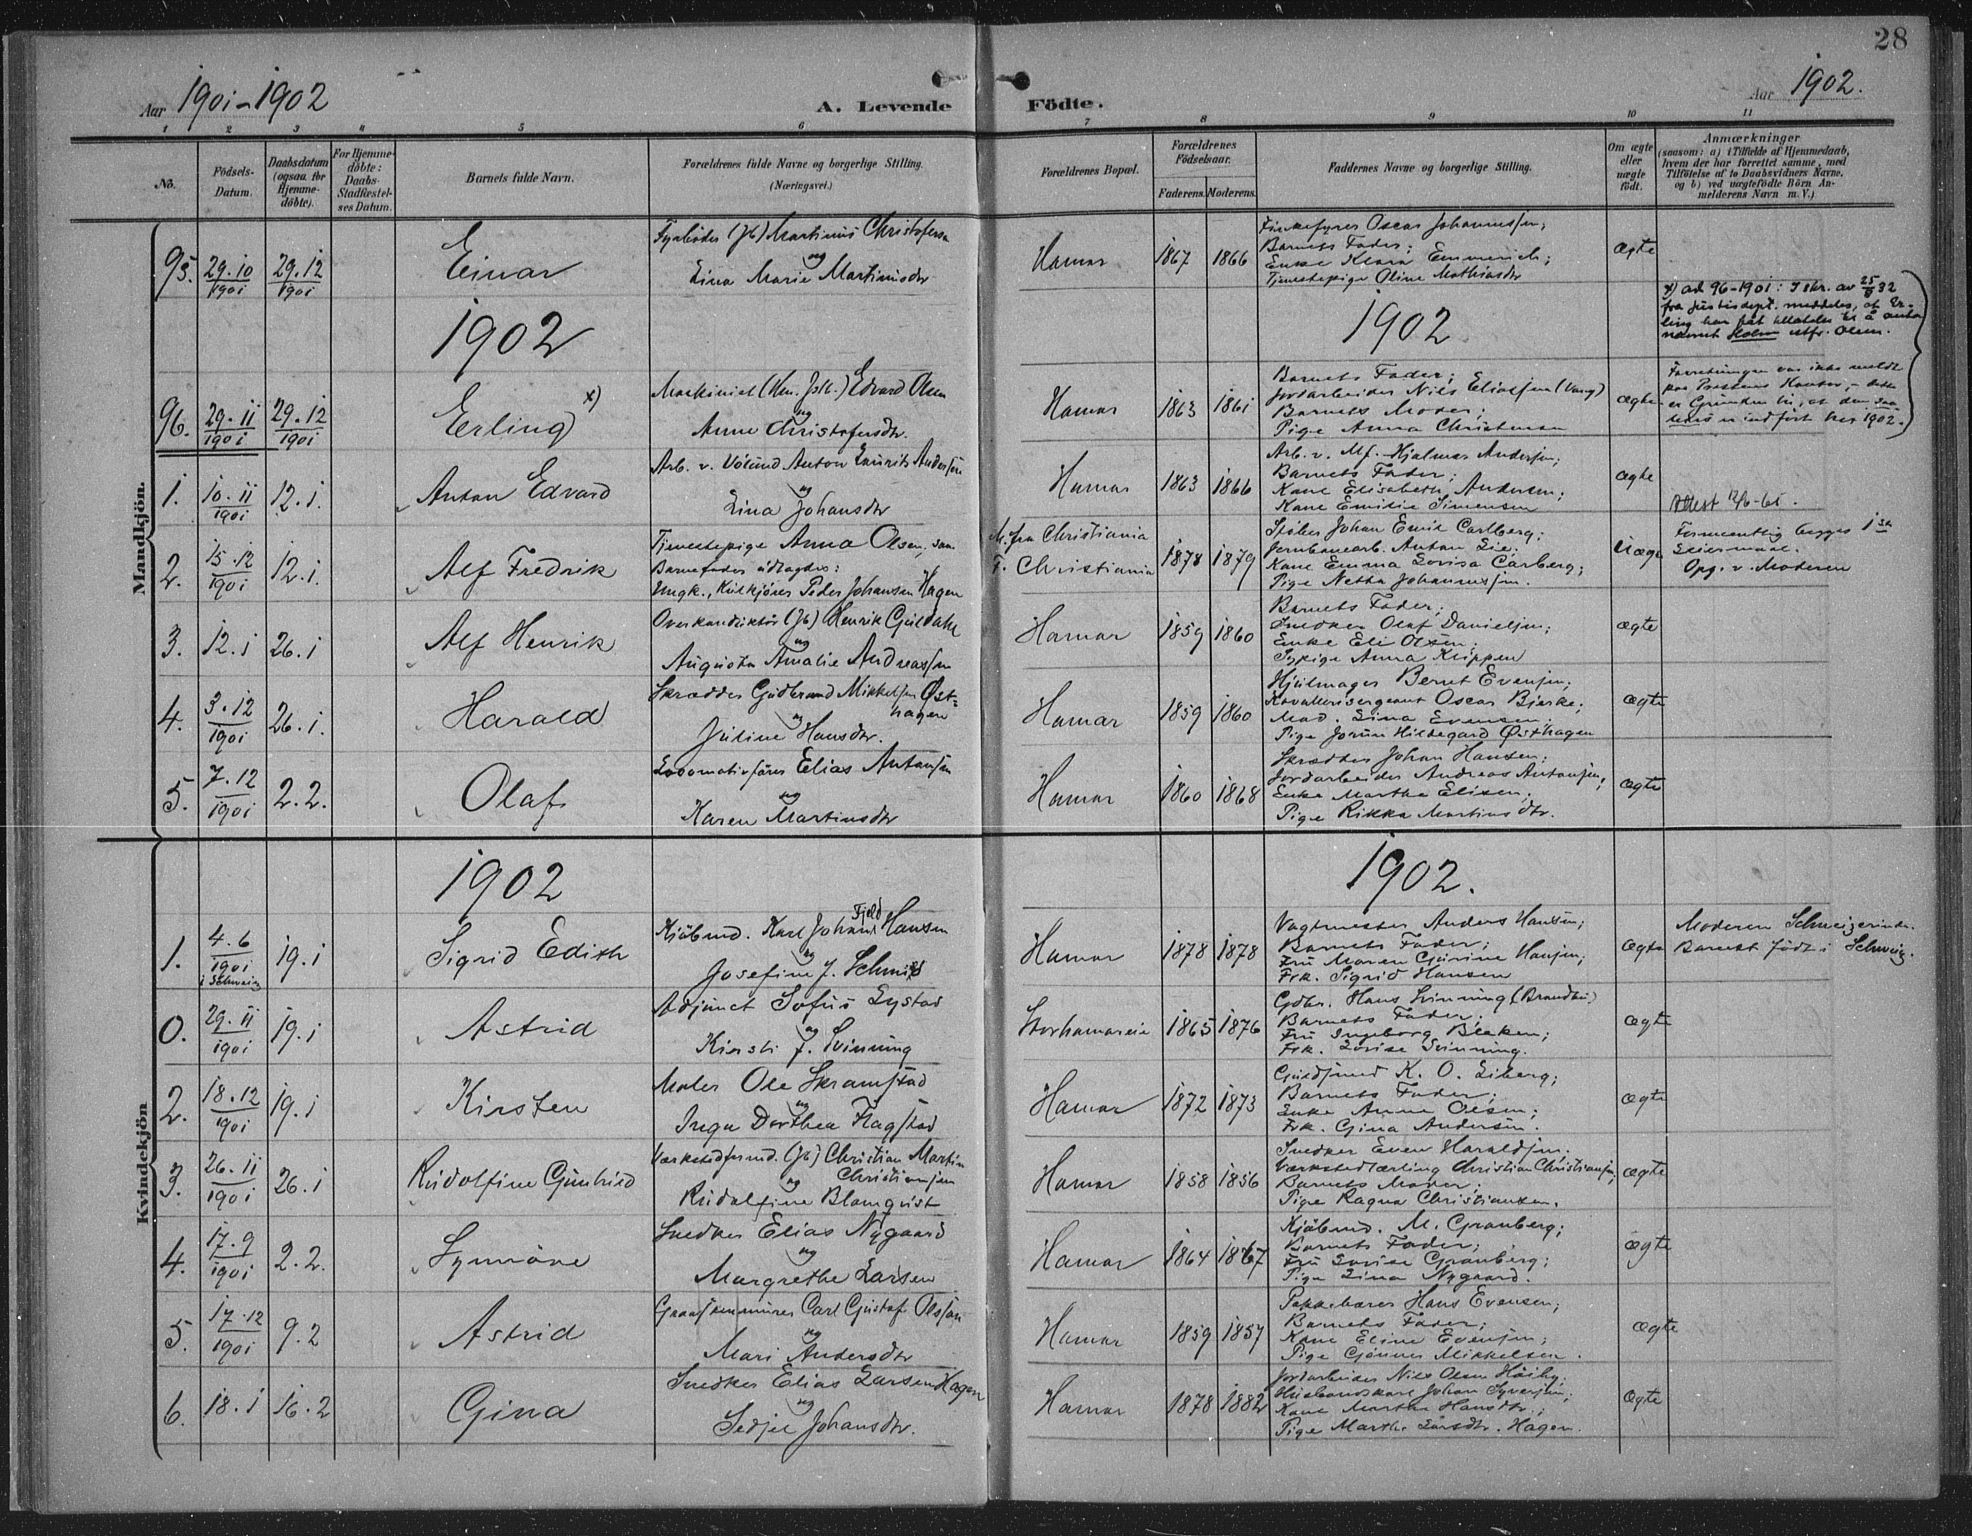 28
Aar 1901-1902
A. Levende Födte.
Aar 1902.
1 2 3 4 5 6 7 8 9 10 11
No.
Födsels-Datum.
Daabsdatum (ogsaa for Hjemmedöbte).
For Hjemmedöbte: Daabs-Stadfæstelses Datum.
Barnets fulde Navn.
Forældrenes fulde Navne og borgerlige Stilling. (Næringsvei.)
Forældrenes Bopæl.
Forældrenes Födselsaar.
Faderens. Moderens.
Faddernes Navne og borgerlige Stilling.
Om ægte eller uægte födt.
Anmærkninger
(saasom: a) i Tilfælde af Hjemmedaab, hvem der har forrettet samme, med Tilföielse af to Daabsvidners Navne, og b) ved uægtefödte Börn Anmelderens Navn m. V.)
Mandkjön.
95. 29.10 1901 29.12 1901 Einar
Fyrböder (Jb) Martinus Christofersen
og
Lina Marie Martinusdtr
Hamar 1867 1866
Oscar Johannessen;
Barnets Fader;
Enke Klara Emmerich;
Tjenestepige Oline Mathiasdtr
Ægte
1902
1902
x) ad 96-1901: I skr. av 25/8 32
fra Justisdept. meddeles, at Er-
ling har fåt tillatelse til å anta
navnet Holm istf. Olsen.
96. 29.11 1901 29.12 1901 Erling x)
Maskinist Edvard Olsen
og
Anne Christofersdtr.
Hamar 1863 1861
Barnets Fader;
Jordarbeider Nils Eliassen (Vang)
Barnets Moder;
Pige Anna Christensen
ægte
Forretningen var ikke meldt
paa Prestens Kontor, - dette
er Grunden til, at den saa-
ledes er indfört her 1902.
1. 10.11 1901 12.1. Anton Edvard
Arb. v. Völund Anton Laurits Andersen
og
Lina Johansdtr
Hamar 1863 1866
Arb. v. Mf. Hjalmar Andersen;
Barnets Fader;
Kone Elisabeth Andersen;
Kone Emilie Simensen
ægte
Attest 12/6-65.
2. 15.12 1901 12.1. Alf Fredrik
Tjenestepige Anna Olsen, som
Barnefader udlagdes:
Ungk., Kulkjörer Peder Johansen Hagen
M. fra Christiania
F. Christiania
1878 1879
Stöber Johan Emil Carlberg;
Jernbanearb. Anton Lie;
Kone Emma Lovisa Carlberg;
Pige Netta Johannessen.
Uægte
Formentlig begges 1ste
Leiermaal.
Opg. v. Moderen
3. 12.1 26.1 Alf Henrik
Overkonduktör (Jb) Henrik Guldahl
og
Augusta Amalie Andreassen
Hamar 1859 1860
Barnets Fader;
Snedker Olaf Danielsen;
Enke Eli Olsen;
Sypige Anna Klippen
Ægte
4. 3.12 1901 26.1. Harald
Skrædder Gudbrand Mikkelsen Öst-
hagen
og
Juline Hansdtr.
Hamar 1859 1860
Hjulmager Bernt Evensen;
Kavallerisergeant Oscar Bjerke;
Mad. Lina Evensen
Pige Jorun Hildegard Østhagen
ægte
5. 7.12 1901 2.2. Olaf
Locomotivförer Elias Antonsen
og
Karen Martinsdtr
Hamar 1860 1868
Skrædder Johan Hansen;
Jordarbeider Andreas Antonsen;
Enke Marthe Elisen;
Pige Rikka Martinsdtr.
Ægte
1902
1902.
Kvindekjön
1. 4.6 1901 i Schweiz 19.1 Sigrid Edith
Kjöbmd. Karl Johan Fjeld Hansen
og
Josefine f. Schmid
Hamar 1878 1878
Vagtmester Anders Hansen;
Barnets Fader;
Fru Maren Gurine Hansen;
Frk. Sigrid Hansen
Ægte
Moderen Schweizerinde.
Barnet født i Schweiz.
0. 29.11 1901 19.1 Astrid
Adjunct Sofus Lystad
og
Kirsti f. Svinning
Storhamareie 1865 1876
Gdbr. Hans Svinning (Brandbu)
Barnets Fader;
Fru Ingeborg Bleken;
Frk. Lovise Svinning.
Ægte
2. 18.12 1901 19.1 Kirsten
Maler Ole Skramstad
og
Inga Dorthea Flagstad
Hamar 1872 1873
Guldsmed K. O. Liberg;
Barnets Fader;
Enke Anne Olsen;
Frk. Gina Andersen.
Ægte
3. 26.11 1901 26.1 Rudolfine Gunhild
Værkstedformd. (Jb) Christian Martin
Christiansen
og
Rudolfine Blomquist
Hamar 1858 1856
Snedker Even Haraldsen;
Værkstedlærling Christian Christiansen;
Barnets Moder;
Pige Ragna Christiansen.
Ægte
4. 17.9 1901 2.2. Synnöve
Snedker Elias Nygaard
og
Margrethe Larsen
Hamar 1864 1867
Kjöbmd. M. Granberg;
Barnets Fader;
Fru Lovise Granberg;
Pige Lina Nygaard.
Ægte
5. 17.12 1901 9.2 Astrid
Carl Gustaf Olsson
og
Mari Andersdtr
Hamar 1859 1857
Pakkebærer Hans Evensen;
Barnets Fader;
Kone Eline Evensen;
Pige Gunner Mikkelsen.
Ægte
6. 18.1 16.2 Gina
Snedker Elias Larsen Hagen
og
Sedsel Johansdtr.
Hamar 1878 1882
Jordarbeider Nils Olsen Höiby;
Johan Syversen;
Kone Marthe Hansdtr.;
Pige Marthe Larsdtr. Hagen.
Ægte